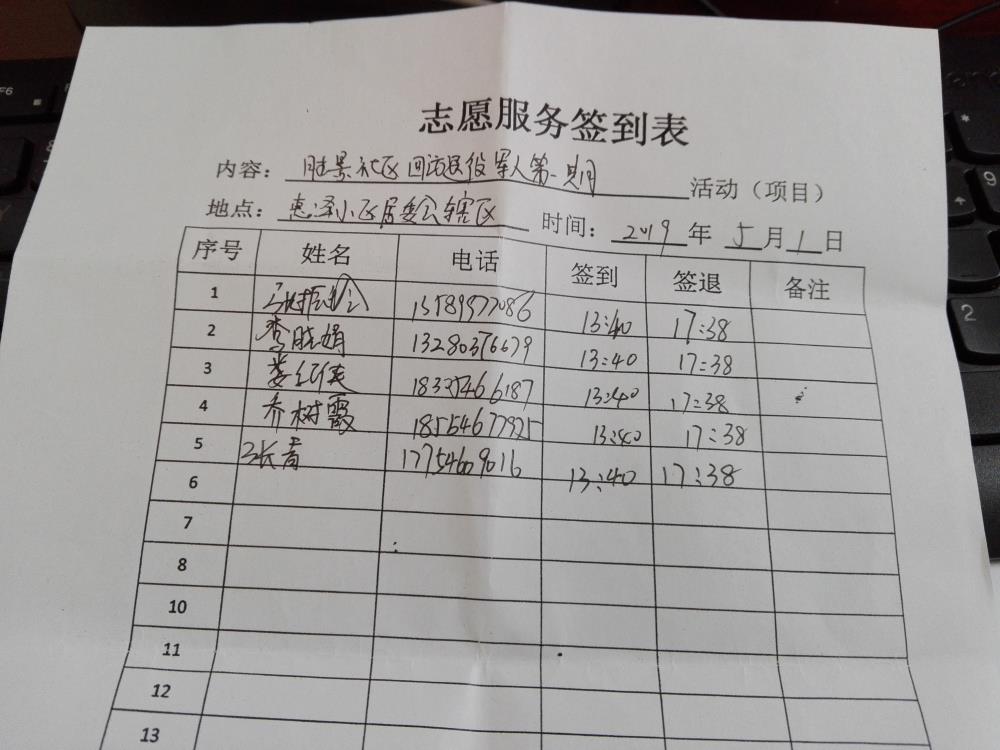 志愿服务签到表
内容：胜景社区回访退役军人第一期 活动（项目）
地点：惠泽小区居委会辖区 时间：2019年5月1日
序号 姓名 电话 签到 签退 备注
1 13:40 17:38
2 李晓娟 13280376679 13:40 17:38
3 18325466187 13:40 17:38
4 乔树霞 18554677925 13:40 17:38
5 长青 17754609016 13:40 17:38
6
7
8
10
11
12
13
F6
9
2